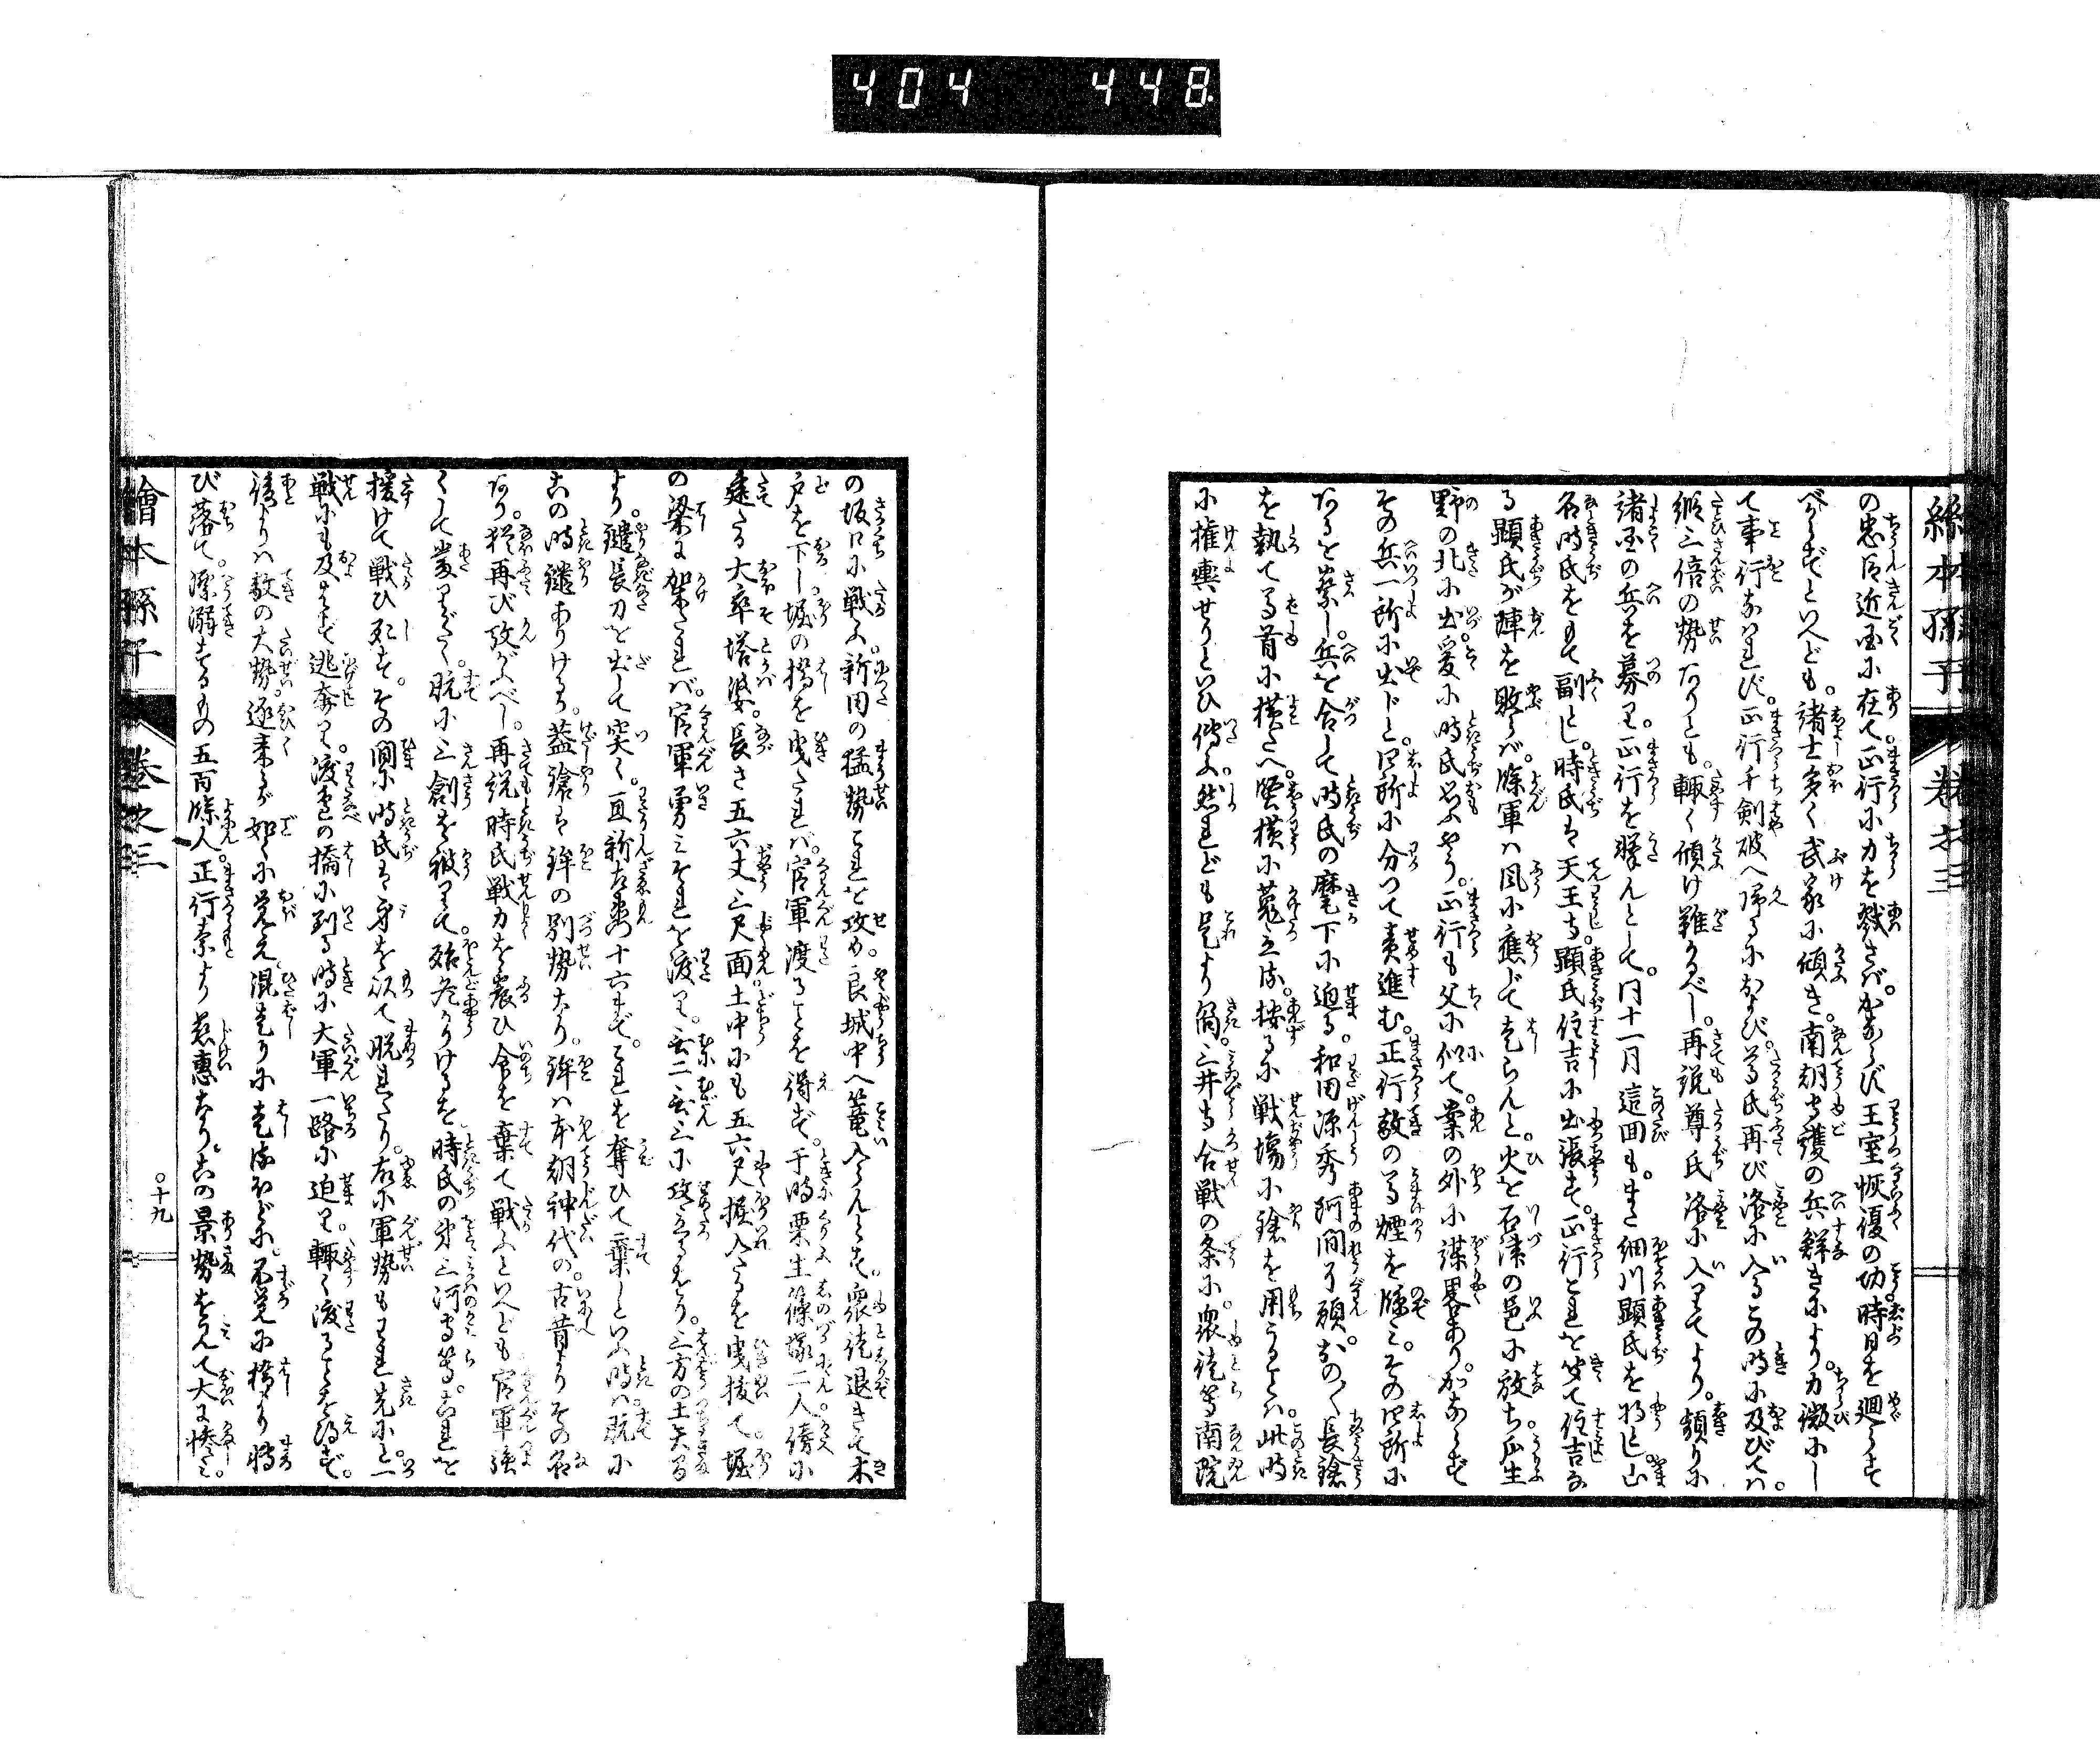 404 448
繪本孫子 巻之三
の忠臣近国に在て。正行に力を戮さバ。かならず王室恢復の功。時日を廻らさず
べからずといへども。諸士多く武家に傾き。南朝守護の兵鮮きにより。力微にし
て事行なハれず。正行千剣破へ帰るにおよび。尊氏再び洛に入るこの時に及びてハ。
縦三倍の勢ありとも。輙く傾け難かるべし。再説尊氏洛に入りてより。頻りに
諸国の兵を募り。正行を撃んとして。同十一月這回も。また細川顕氏を将とし山
名時氏をもて副とし。時氏は天王寺。顕氏住吉に出張す。正行これを聞て住吉な
る顕氏が陣を敗らバ。餘軍ハ風に應じて走らんと。火を石津の邑に放ち瓜生
野の北に出。爰に時氏思ふやう。正行も父に似て。案の外に謀畧あり。かならず
その兵一所に出じと。四所に分つて責進む。正行敵の馬煙を臨み。その四所に
あるを察し。兵を合して時氏の麾下に迫る。和田源秀阿間了願。おの〳〵長鎗
を執て馬首に横たへ。竪横に薙立る。按るに戦場に鎗を用ること ハ。此時
に権輿せりといひ傳ふ。然れども是より前。三井寺合戦の条に。衆徒等南院
の坂口に戦ふ。新田の猛勢これを攻め。良城中へ篭入らんとす。衆徒退きて木
戸を下し。堀の橋を曳たれバ。官軍渡ることを得ず。于時栗生篠塚二人傍に
建たる大卒塔婆。長さ五六丈三尺面。土中にも五六尺掘入たるを曳抜て。堀
の梁に架たれバ。官軍勇みそれを渡り。一二三に攻立る。三方の土矢間
より。鑓長刀を出して突く。亘新左衛門十六まで。これを奪ひて棄しといふ時ハ。既に
この時鑓ありけるか。蓋鎗は鉾の別勢なり。鉾ハ本朝神代の。古昔よりその名
あり。猶再び攷がふべし。再説時氏戦力を震ひ命を棄て戦ふといへども官軍強
くして當りがたく。既に三創を被りて。殆危うかりけるを。時氏の弟三河守等。これを
援けて戦ひ死す。その間に時氏は身を以て脱れたり。左右軍勢もわれ先にと。一
戦にも及バずして逃奔り。渡邉の橋に到る時に大軍一路に迫り。輙く渡ることを得ず。
後よりハ敵の大勢。逐来るが如くに覚え。混走りに走るほどに。不覚に橋より將
び落て。漂溺するもの五百餘人。正行素より慈惠なり。この景勢を見て大に惨み。
繪本孫子 巻之三
〇十九